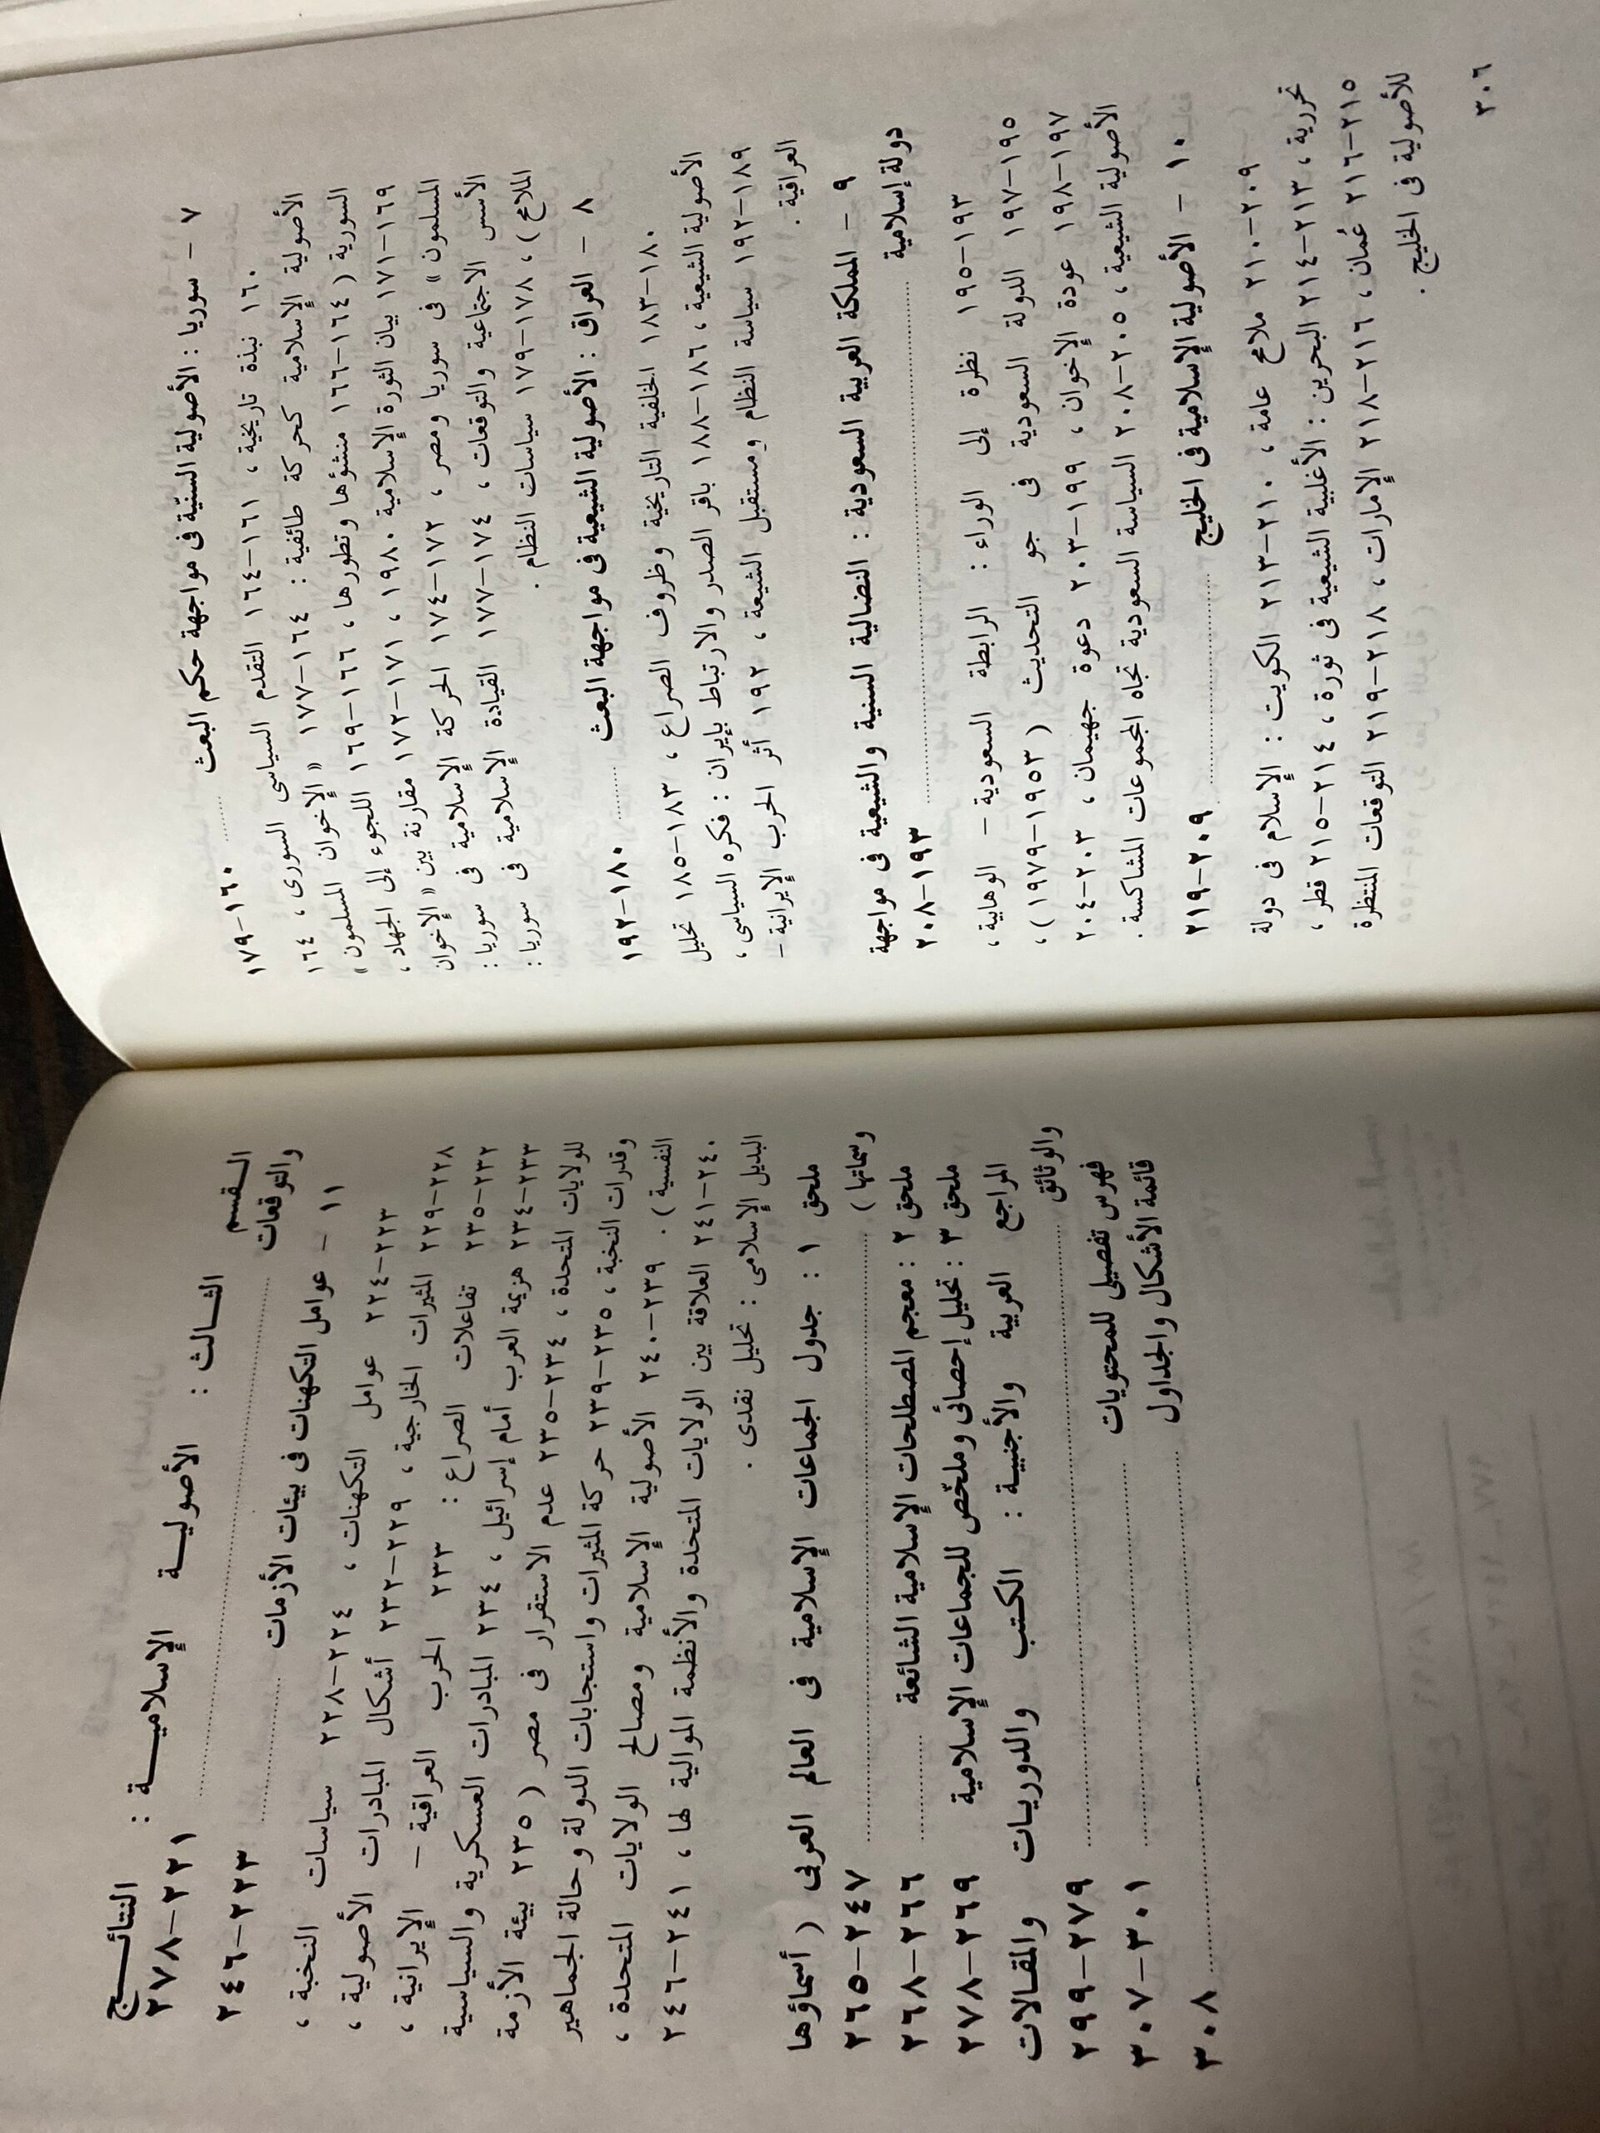 ٧ – سوريا : الأصولية السنيّة فى مواجهة حكم البعث
١٦٠–١٧٩
١٦٠ نبذة تاريخية ، ١٦١–١٦٤ التقدم السياسى السورى ، ١٦٤
الأصولية الإسلامية كحركة طائفية : ١٦٤–١٧٧ « الإخوان المسلمون »
السورية ( ١٦٤–١٦٦ منشؤها وتطورها ، ١٦٦–١٦٩ اللجوء إلى الجهاد ،
١٦٩–١٧١ بيان الثورة الإسلامية ١٩٨٠ ، ١٧١–١٧٢ مقارنة بين « الإخوان
المسلمون » فى سوريا ومصر ، ١٧٢–١٧٤ الحركة الإسلامية فى سوريا :
الأسس الاجتماعية والتوقعات ، ١٧٤–١٧٧ القيادة الإسلامية فى سوريا :
الملامح ) ، ١٧٨–١٧٩ سياسات النظام .
٨ – العراق : الأصولية الشيعية فى مواجهة البعث
١٨٠–١٩٢
١٨٠–١٨٣ الخلفية التاريخية وظروف الصراع ، ١٨٣–١٨٥ تحليل
الأصولية الشيعية ، ١٨٦–١٨٨ باقر الصدر والارتباط بإيران : فكره السياسى ،
١٨٩–١٩٢ سياسة النظام ومستقبل الشيعة ، ١٩٢ أثر الحرب الإيرانية –
العراقية .
٩ – المملكة العربية السعودية : النضالية السنية والشيعية فى مواجهة
دولة إسلامية
١٩٣–٢٠٨
١٩٣–١٩٥ نظرة إلى الوراء : الرابطة السعودية – الوهابية ،
١٩٥–١٩٧ الدولة السعودية فى جو التحديث ( ١٩٥٣–١٩٧٩ ) ،
١٩٧–١٩٨ عودة الإخوان ، ١٩٩–٢٠٣ دعوة جهيمان ، ٢٠٣–٢٠٤
الأصولية الشيعية ، ٢٠٥–٢٠٨ السياسة السعودية تجاه المجموعات المشاكسة .
١٠ – الأصولية الإسلامية فى الخليج
٢٠٩–٢١٩
٢٠٩–٢١٠ ملامح عامة ، ٢١٠–٢١٣ الكويت : الإسلام فى دولة
تحررية ، ٢١٣–٢١٤ البحرين : الأغلبية الشيعية فى ثورة ، ٢١٤–٢١٥ قطر ،
٢١٥–٢١٦ عُمان ، ٢١٦–٢١٨ الإمارات ، ٢١٨–٢١٩ التوقعات المنتظرة
للأصولية فى الخليج .
٣٠٦
القسم الثالث : الأصولية الإسلامية : النتائج
والتوقعات
٢٢١–٢٧٨
١١ – عوامل التكهنات فى بيئات الأزمات
٢٢٣–٢٤٦
٢٢٣–٢٢٤ عوامل التكهنات ، ٢٢٤–٢٢٨ سياسات النخبة ،
٢٢٨–٢٢٩ المثيرات الخارجية ، ٢٢٩–٢٣٢ أشكال المبادرات الأصولية ،
٢٣٢–٢٣٥ تفاعلات الصراع : ٢٣٣ الحرب العراقية – الإيرانية ،
٢٣٣–٢٣٤ هزيمة العرب أمام إسرائيل ، ٢٣٤ المبادرات العسكرية والسياسية
للولايات المتحدة ، ٢٣٤–٢٣٥ عدم الاستقرار فى مصر ( ٢٣٥ بيئة الأزمة
وقدرات النخبة ، ٢٣٥–٢٣٩ حركة المثيرات واستجابات الدولة وحالة الجماهير
النفسية ) . ٢٣٩–٢٤٠ الأصولية الإسلامية ومصالح الولايات المتحدة ،
٢٤٠–٢٤١ العلاقة بين الولايات المتحدة والأنظمة الموالية لها ، ٢٤١–٢٤٦
البديل الإسلامى : تحليل نقدى .
ملحق ١ : جدول الجماعات الإسلامية فى العالم العربى ( أسماؤها
وسماتها )
٢٤٧–٢٦٥
ملحق ٢ : معجم المصطلحات الإسلامية الشائعة
٢٦٦–٢٦٨
ملحق ٣ : تحليل إحصائى وملخّص للجماعات الإسلامية
٢٦٩–٢٧٨
المراجع العربية والأجنبية : الكتب والدوريات والمقالات
والوثائق
٢٧٩–٢٩٩
فهرس تفصيلى للمحتويات
٣٠١–٣٠٧
قائمة الأشكال والجداول
٣٠٨